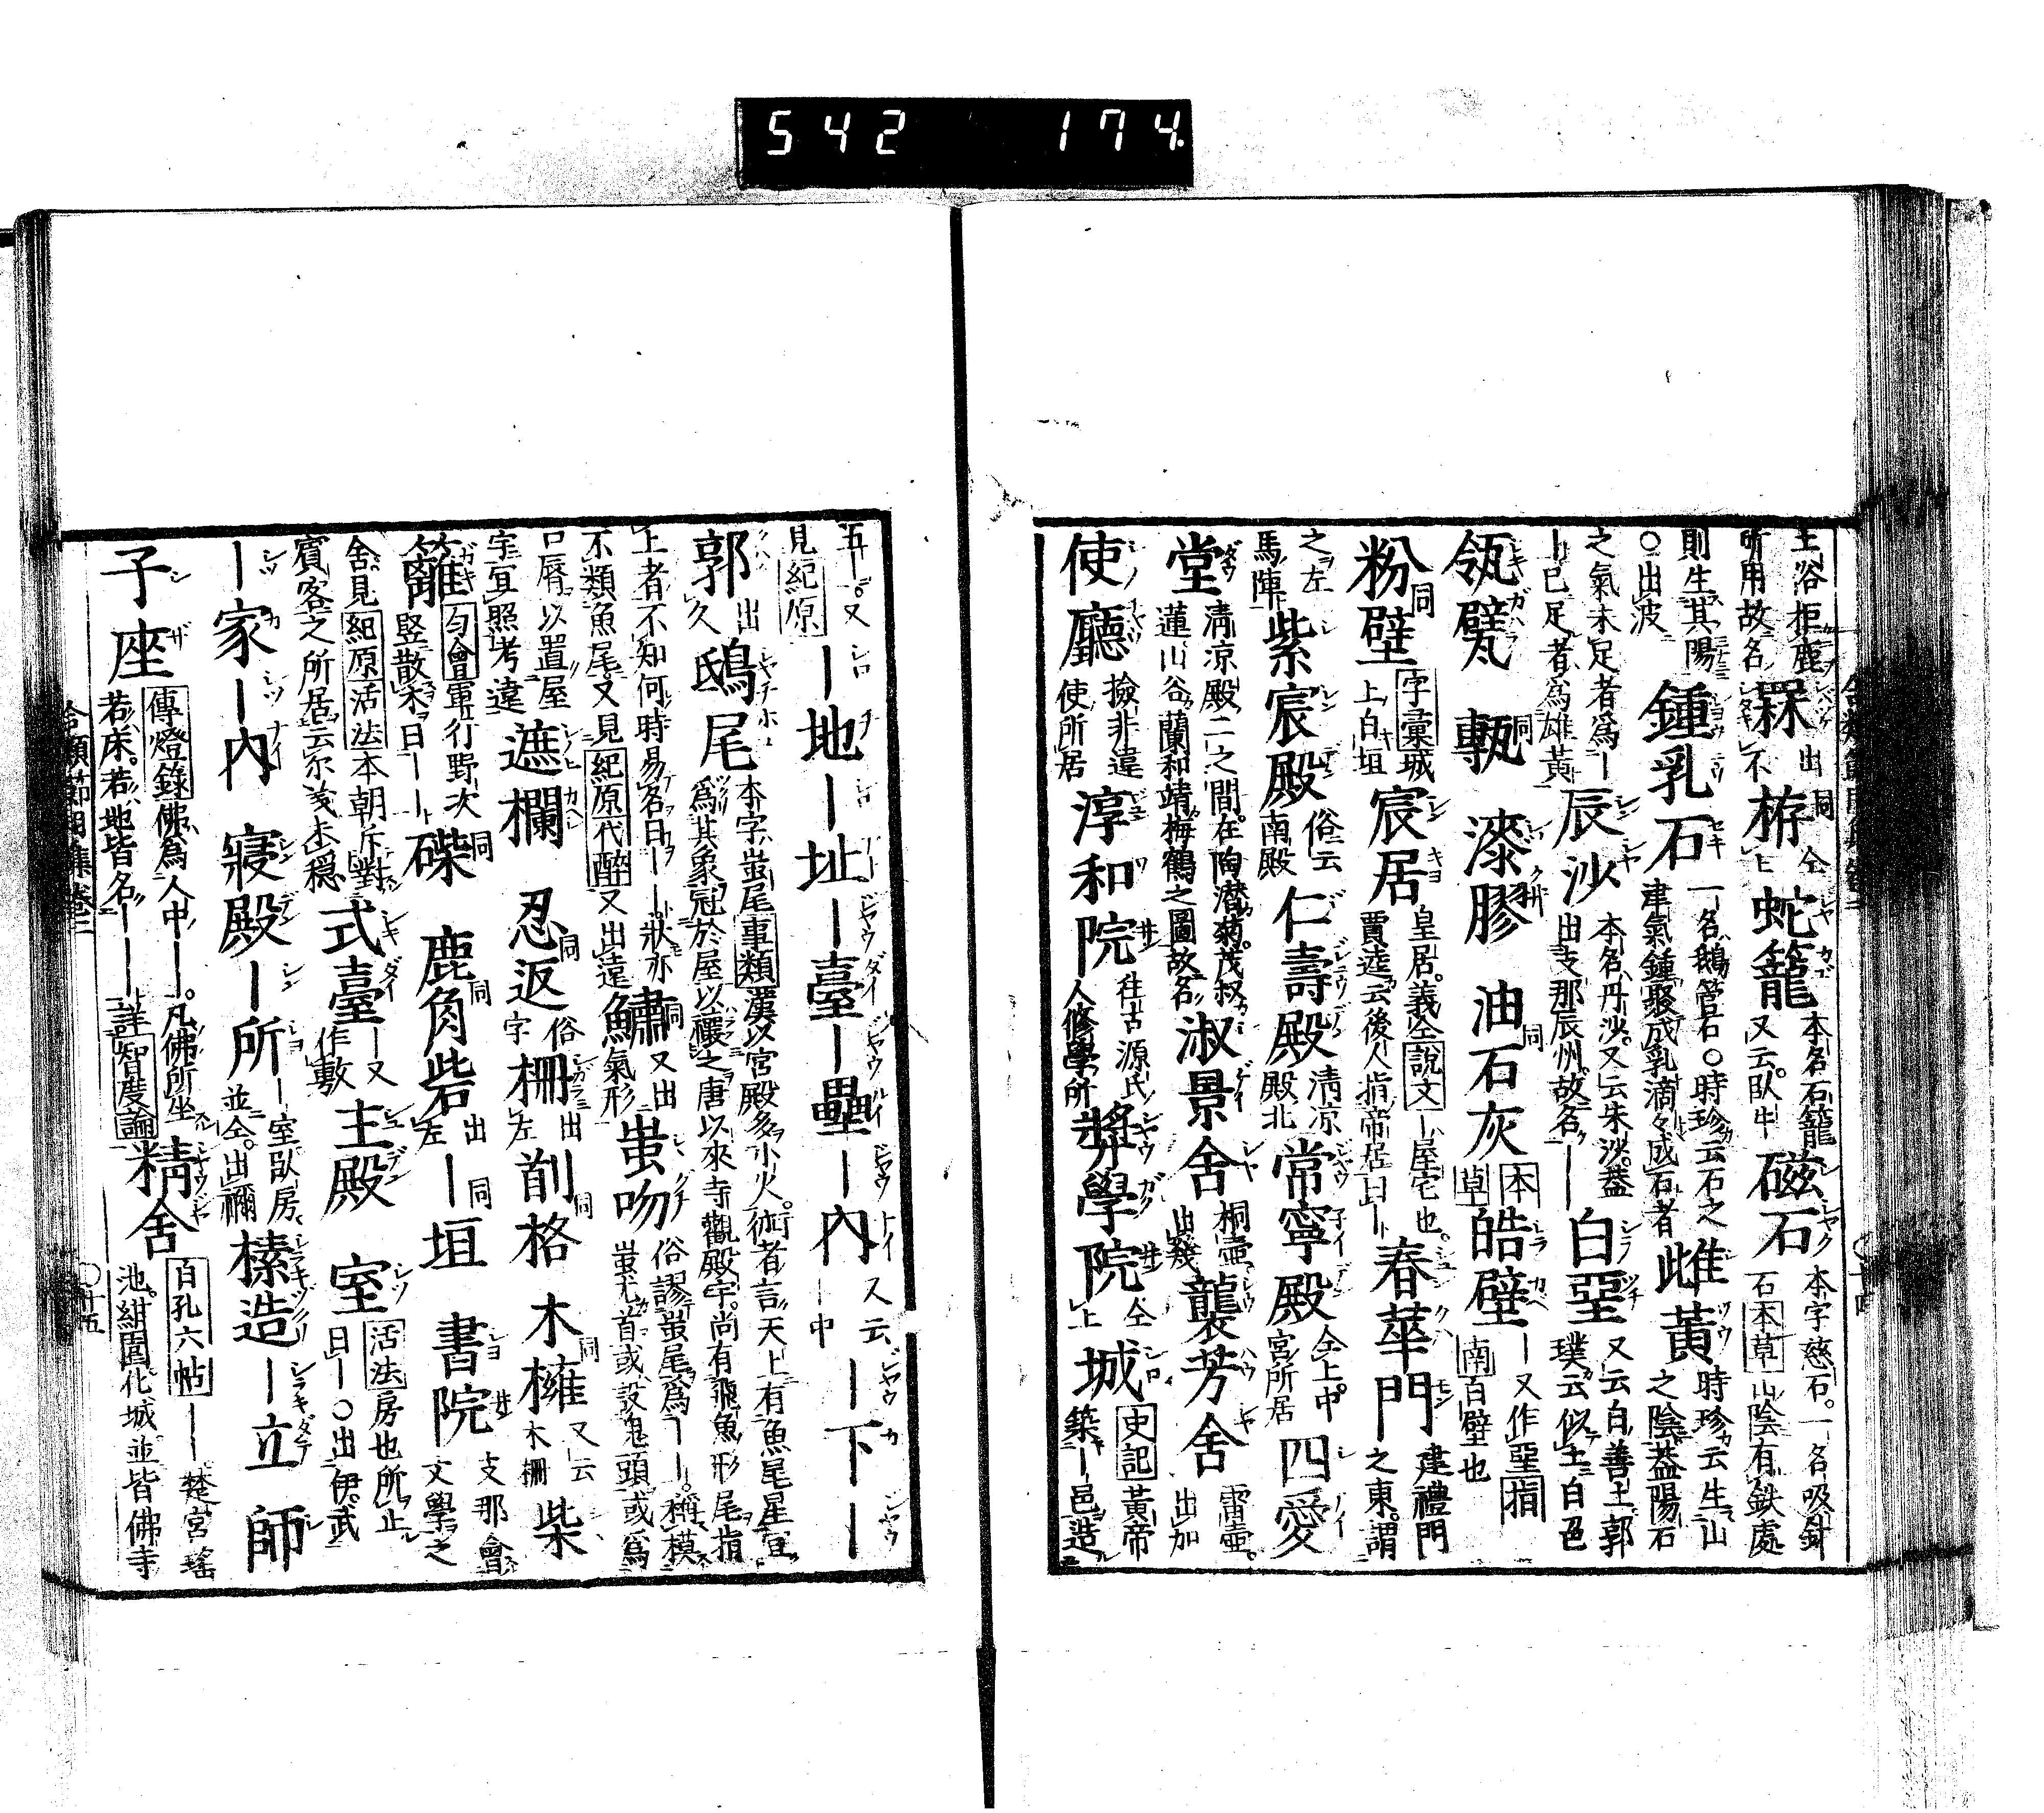 542 174
主浴柜鹿所用故名 罧 出不 栫 同仝上 蛇籠 本名石籠又云臥牛 磁石 本字慈石。一名吸針石 本草 山陰有鉄處
則生其陽○出波 鍾乳石 一名鵝管石○時珍云石之津氣鍾聚成乳滴々成石者 雌黃 時珍云生山之陰蓋陽石
之氣未足者為ー已足者為雄黃 辰沙 本名丹沙又云朱沙蓋出支那辰州故名ーー 白堊 又云白善土郭璞云似土白色
瓴甓 甎 同 漆膠 油石灰 同 本草 皓壁 ー又作堊 指南 百壁也
粉壁 同 字彙 城上白垣 宸居 皇居。義仝 說文 ー屋宅也。賈逵云後人指帝居曰ー 春華門 建禮門之東。謂
之左馬陣 紫宸殿 俗云南殿 仁壽殿 清凉殿北 常寧殿 仝上。中宮所居 四愛
堂 清凉殿二之間。在陶潜菊。茂叔蓮山谷蘭和靖梅鶴之圖故名 淑景舍 桐壺。出幾 襲芳舍 雷壺。出加
使廳 撿非違使所居 淳和院 往古源氏人修學所 奬學院 仝上 城 史記 黃帝築ー邑造
五ー。又見 紀原 ー地 ー址 ー臺 ー壘 ー內 又云ー中 ー下ー
郭 出久 鴟尾 本字蚩尾 事類 漢以宮殿多小火。術者言天上有魚尾星宜為其象冠於屋以禳之唐以來寺觀殿宇。尚有飛魚形尾指
上者不知何時易名曰ーー狀亦不類魚尾。又見 紀原 代醉 又出遠 鱐 同又出氣形 蚩吻 俗謬蚩尾為ーー。稱模蚩尤首或設鬼頭或為
口脣以置屋宇宜照考遠 遮欄 忍返 同俗字 柵 出左 削格 同 木擁 同又云木柵 柴
籬 匀會 軍行野次竪散木曰ーー 磔 同 鹿角砦 同出左 ー垣 同 書院 支那會文學之
舍見 紀原 活法 本朝斥對賓客之所居云尒淺未穩 式臺 ー又作敷 主殿 室 活法 房也所止曰ー○出伊。武
ー家 ー內 寢殿 ー所 ー室臥房並仝。出禰 榛造 ー立 師
子座 傳燈錄 佛為人中ーー。凡佛所坐若床。若地皆名ーーー 詳 智度論 精舍 百孔六帖 ーー楚宮瑤池。紺園。化城並皆佛寺
合類節用集卷二 ○十五